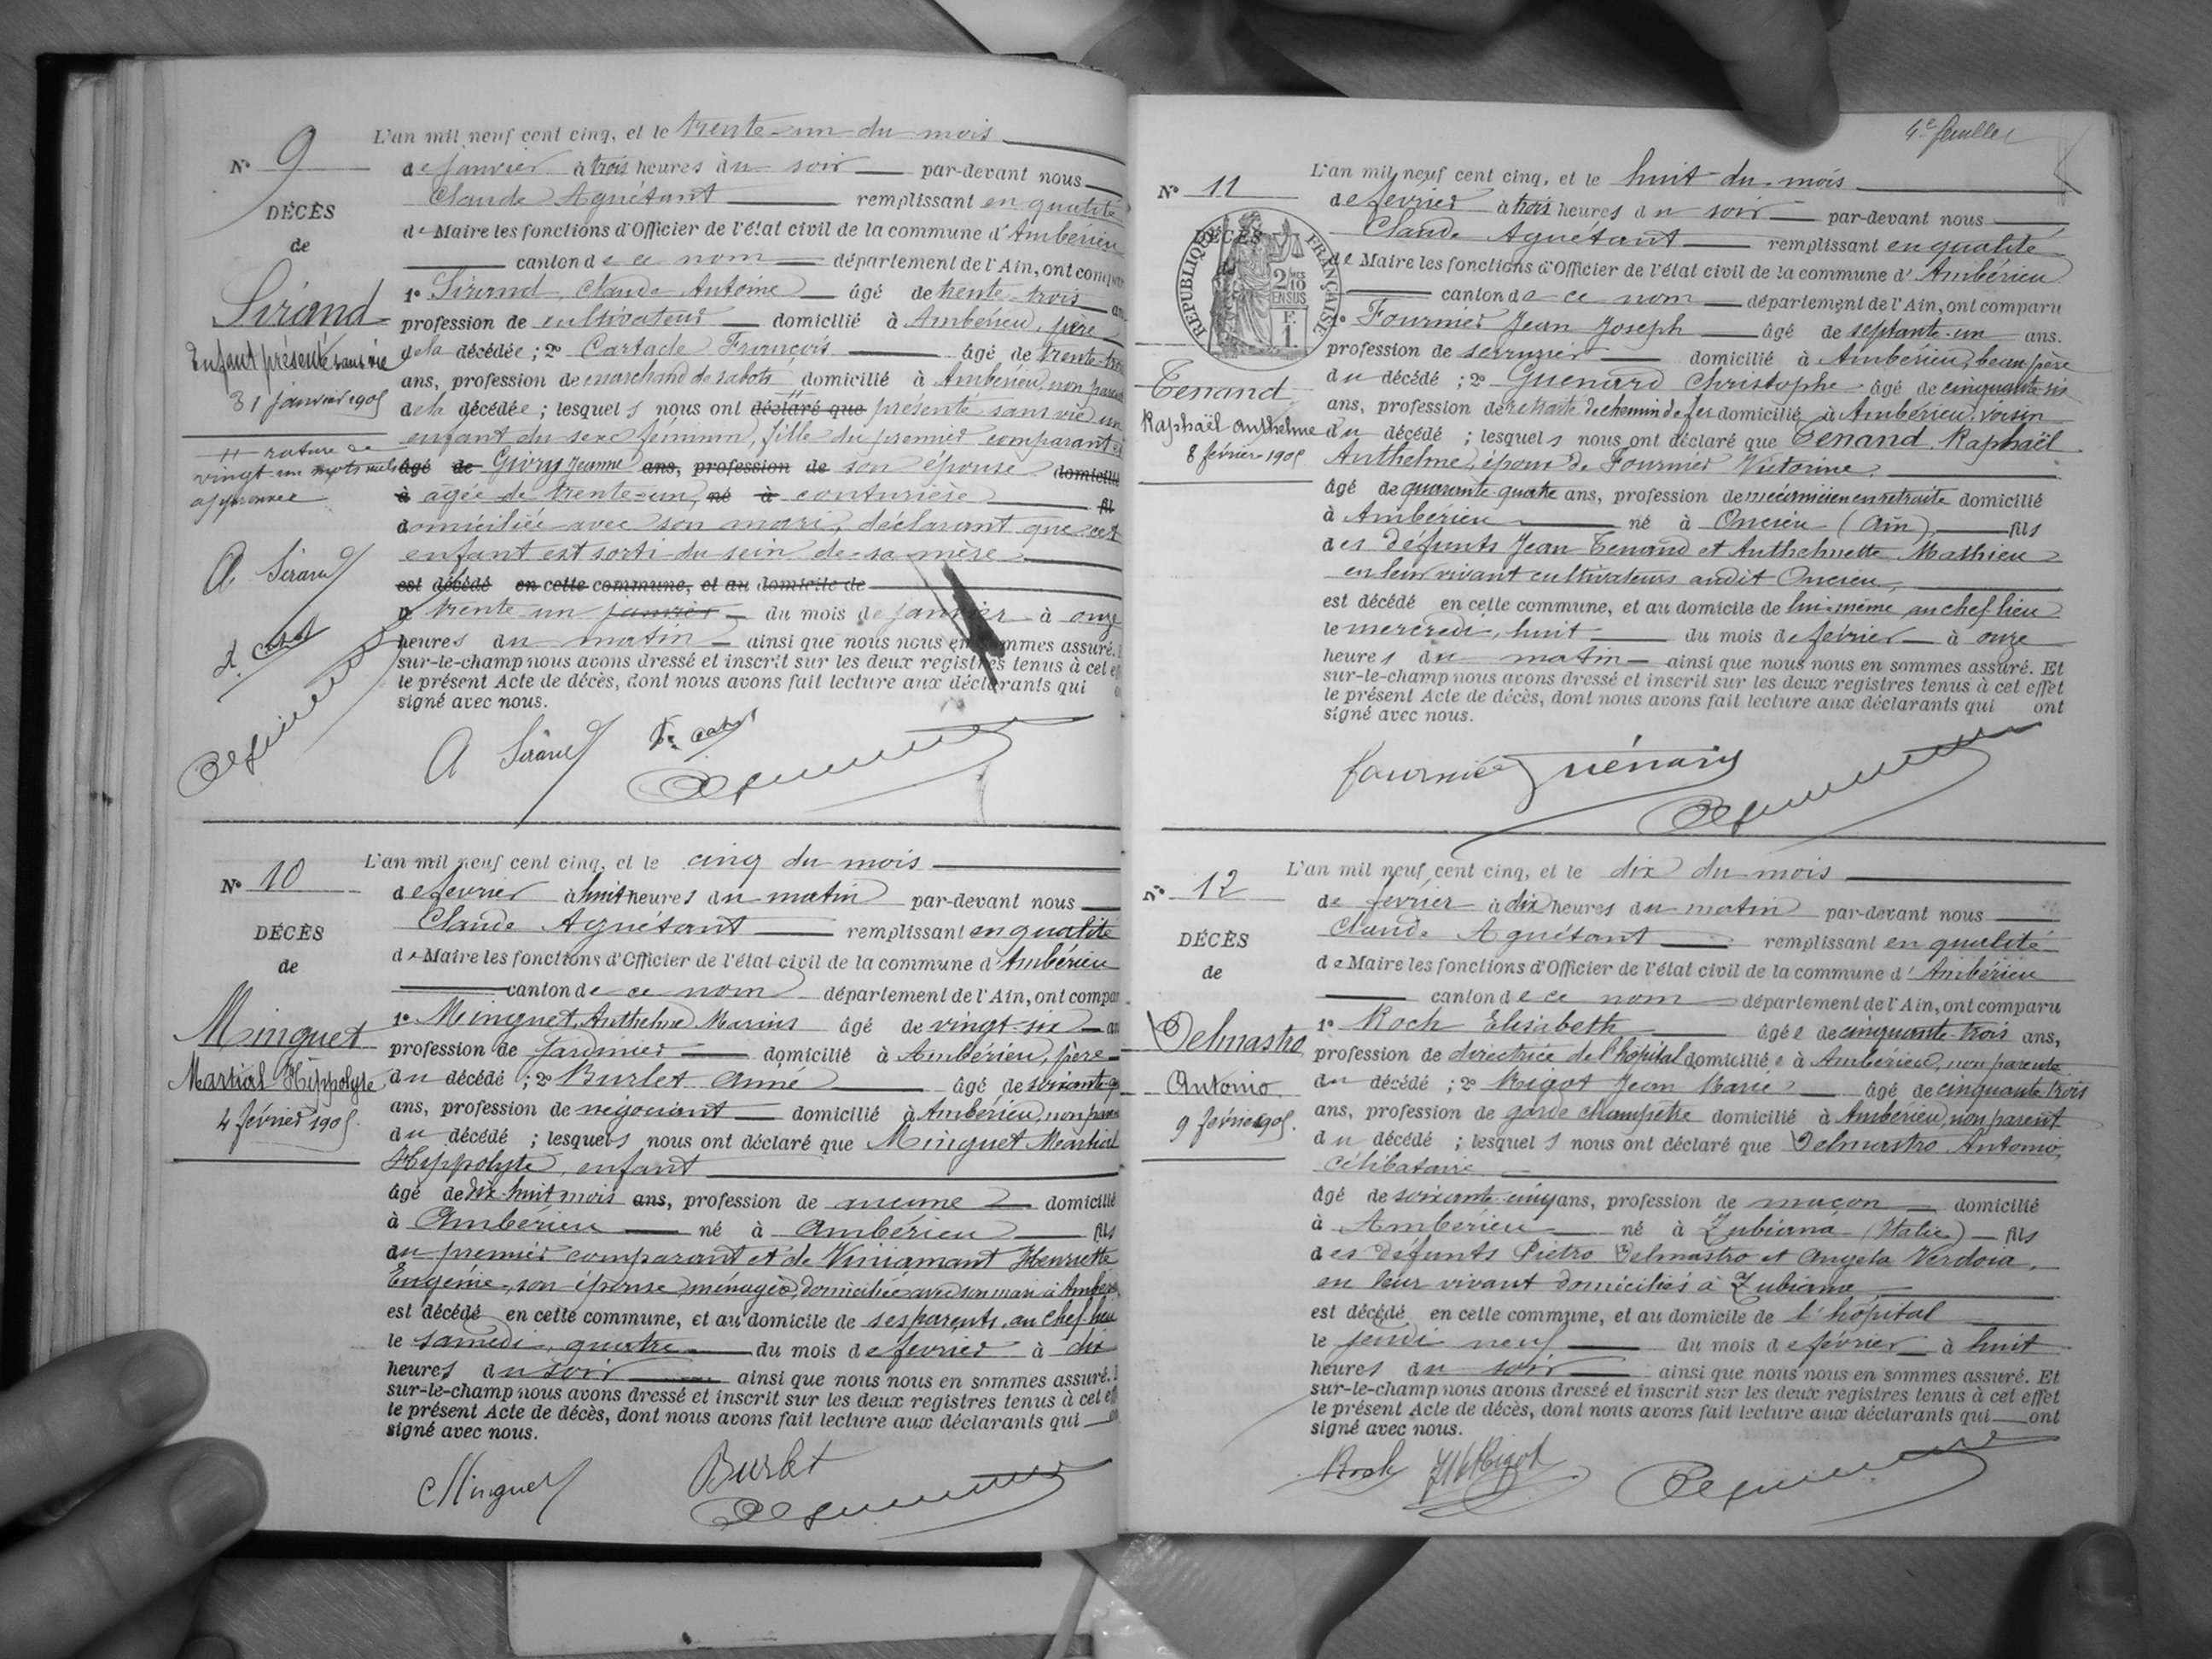 N° 9
DÉCÈS
de
Sirand
Enfant présenté sans vie
31 janvier 1905
rature de
vingt-un mots nuls
approuvée
A. Sirand
L'an mil neuf cent cinq, et le trente-un du mois
de janvier à trois heures du soir par-devant nous
Claude Aguétant remplissant en qualité
de Maire les fonctions d'Officier de l'état civil de la commune d'Ambérieu
canton de ce nom département de l'Ain, ont comparu
1° Sirand, Claude Antoine âgé de trente-trois
profession de cultivateur domicilié à Ambérieu, père
de la décédée ; 2° François âgé de trente
ans, profession de marchand de sabots domicilié à Ambérieu, non parent
de la décédée ; lesquels nous ont déclaré que présenté sans vie un
enfant du sexe féminin, fille du premier comparant et
âgé de Givry Jeanne ans, profession de son épouse domicilié
à âgée de trente-un, né à couturière fil
domiciliée avec son mari, déclarant que cet
enfant est sorti du sein de sa mère
est décédé en cette commune, et au domicile de
trente un janvier du mois de janvier à onze
heures du matin ainsi que nous nous en sommes assuré.
sur-le-champ nous avons dressé et inscrit sur les deux registres tenus à cet
le présent Acte de décès, dont nous avons fait lecture aux déclarants qui
signé avec nous.
A Sirand
N° 10
DÉCÈS
de
Minguet
Martial Hippolyte
4 février 1905
L'an mil neuf cent cinq, et le cinq du mois
de février à huit heures du matin par-devant nous
Claude Aguétant remplissant en qualité
de Maire les fonctions d'Officier de l'état civil de la commune d'Ambérieu
canton de ce nom département de l'Ain, ont compar
1° Minguet, Anthelme Marius âgé de vingt-six
profession de jardinier domicilié à Ambérieu, père
du décédé ; 2° Burlet Aimé âgé de soixante
ans, profession de négociant domicilié à Ambérieu, non parent
du décédé ; lesquels nous ont déclaré que Minguet Martial
Hippolyte, enfant
âgé de dix-huit mois ans, profession de aucune domicilié
à Ambérieu né à Ambérieu fils
du premier comparant et de Viniamant Henriette
Eugénie, son épouse ménagère, domiciliée avec son mari à Ambérieu
est décédé en cette commune, et au domicile de ses parents, au chef-lieu
le samedi, quatre du mois de février à dix
heures du soir ainsi que nous nous en sommes assuré.
sur-le-champ nous avons dressé et inscrit sur les deux registres tenus à cet
le présent Acte de décès, dont nous avons fait lecture aux déclarants qui
signé avec nous.
Minguet Burlet
4e feuillet
N° 11
DÉCÈS
RÉPUBLIQUE FRANÇAISE
2/10 EN SUS
F. 1.
Tenand
Raphaël Anthelme
8 février 1905
L'an mil neuf cent cinq, et le huit du mois
de février à trois heures du soir par-devant nous
Claude Aguétant remplissant en qualité
de Maire les fonctions d'Officier de l'état civil de la commune d'Ambérieu
canton de ce nom département de l'Ain, ont comparu
1° Fournier Jean Joseph âgé de septante-un ans.
profession de serrurier domicilié à Ambérieu, beau père
du décédé ; 2° Guenard Christophe âgé de cinquante-six
ans, profession de retraité de chemin de fer domicilié à Ambérieu, voisin
du décédé ; lesquels nous ont déclaré que Tenand Raphaël
Anthelme, époux de Fournier Victorine
âgé de quarante-quatre ans, profession de mécanicien en retraite domicilié
à Ambérieu né à Oncieu (Ain) fils
des défunts Jean Tenand et Anthelmette Mathieu
en leur vivant cultivateurs audit Oncieu
est décédé en cette commune, et au domicile de lui-même, au chef-lieu
le mercredi, huit du mois de février à onze
heures du matin ainsi que nous nous en sommes assuré. Et
sur-le-champ nous avons dressé et inscrit sur les deux registres tenus à cet effet
le présent Acte de décès, dont nous avons fait lecture aux déclarants qui ont
signé avec nous.
Fournier Guénard
N° 12
DÉCÈS
de
Delmastro
Antonio
9 février 1905.
L'an mil neuf cent cinq, et le dix du mois
de février à dix heures du matin par-devant nous
Claude Aguétant remplissant en qualité
de Maire les fonctions d'Officier de l'état civil de la commune d'Ambérieu
canton de ce nom département de l'Ain, ont comparu
1° Roch Elisabeth âgée de cinquante-trois ans,
profession de directrice de l'hôpital domiciliée à Ambérieu, non parente
du décédé ; 2° Rigot Jean Marie âgé de cinquante trois
ans, profession de garde champêtre domicilié à Ambérieu, non parent
du décédé ; lesquels nous ont déclaré que Delmastro Antonio,
célibataire
âgé de soixante-cinq ans, profession de maçon domicilié
à Ambérieu né à Zubiena (Italie) fils
des défunts Pietro Delmastro et Angela Verdoia,
en leur vivant domiciliés à Zubiena
est décédé en cette commune, et au domicile de l'hôpital
le jeudi neuf du mois de février à huit
heures du soir ainsi que nous nous en sommes assuré. Et
sur-le-champ nous avons dressé et inscrit sur les deux registres tenus à cet effet
le présent Acte de décès, dont nous avons fait lecture aux déclarants qui ont
signé avec nous.
Roch JM Rigot